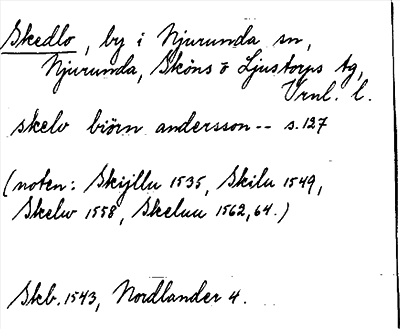 Skedlo, by i Njurunda sn,
Njurunda, Sköns o Ljustorps tg,
Vrnl. l.
skelv biörn andersson -- s.127
(noten: Skijllu 1535, Skilu 1549,
Skelw 1558, Skeluu 1562, 64.)
Skb. 1543, Nordlander 4.